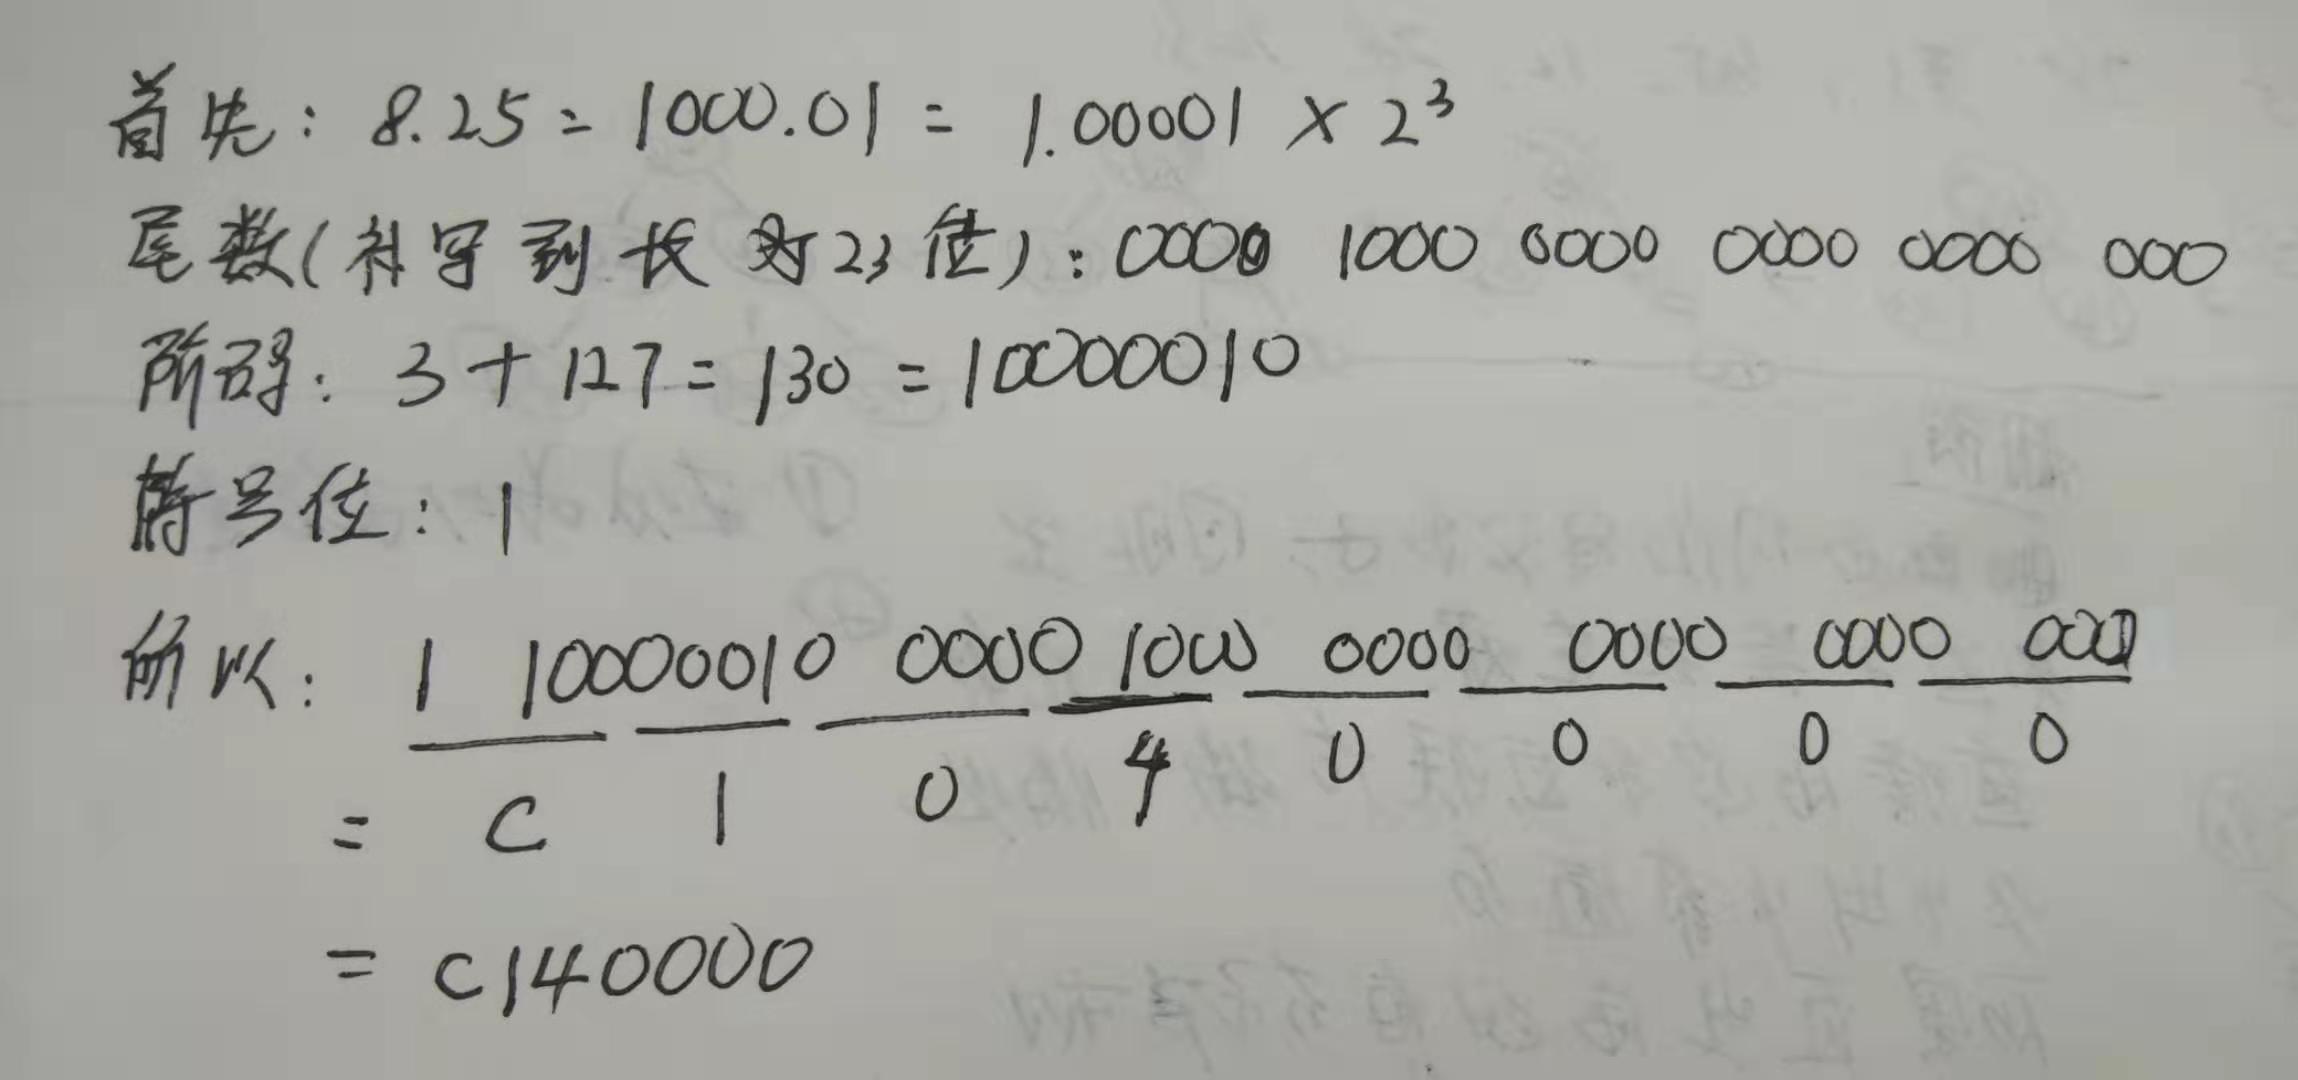 首先: 8.25 = 1000.01 = 1.00001 × 2³
尾数(补零到长为23位): 0000 1000 0000 0000 0000 000
阶码: 3 + 127 = 130 = 10000010
符号位: 1
所以: 1 10000010 0000 1000 0000 0000 0000 000
= C 1 0 4 0 0 0 0
= C140000